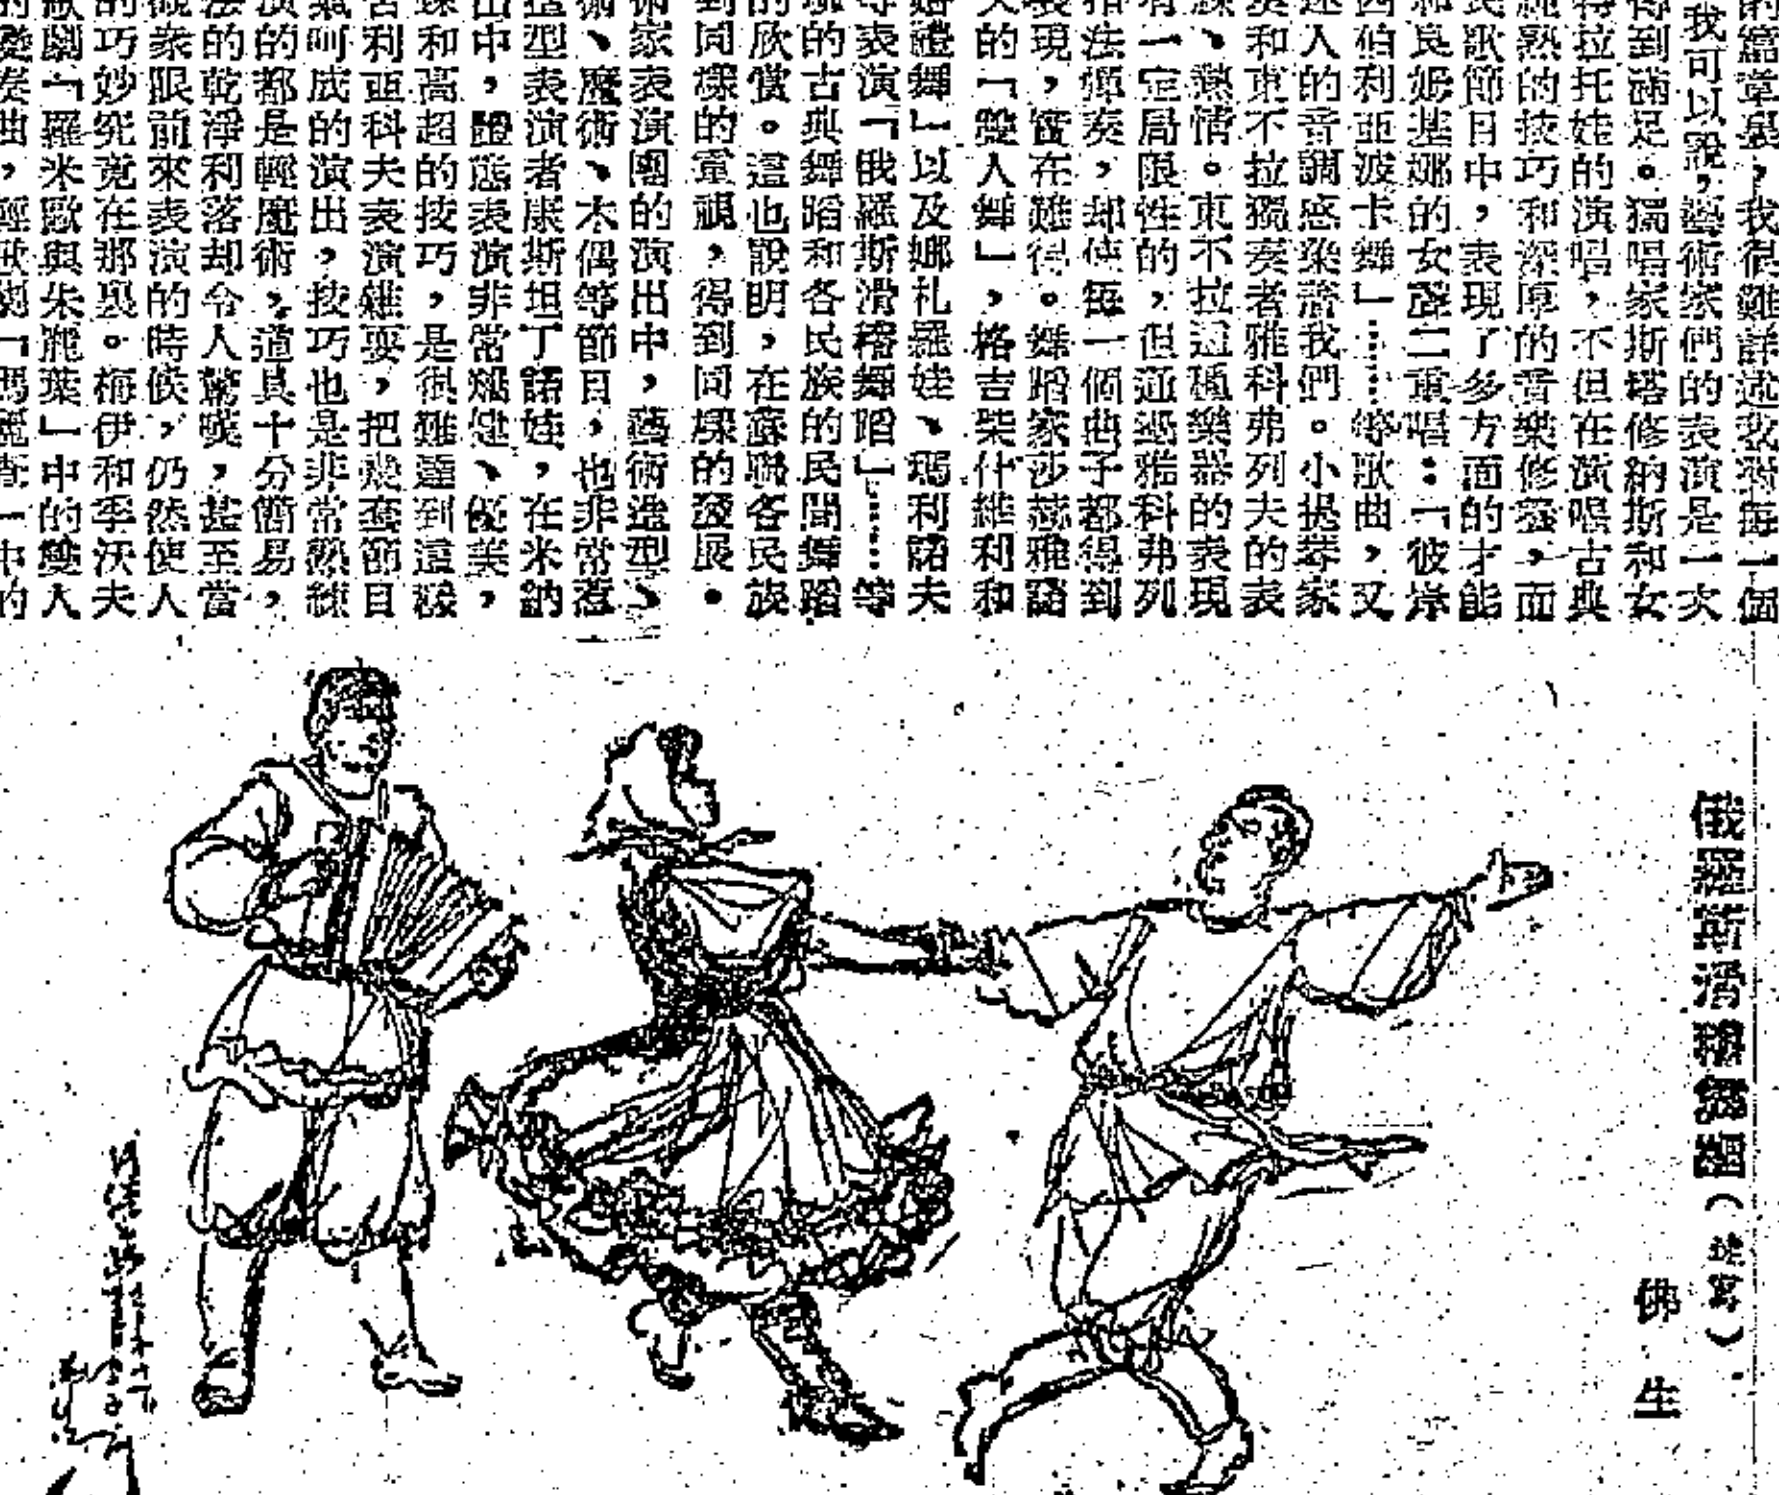 的篇章是，我很難詳述我對每一個
我可以說，藝術家們的表演是一次
得到滿足。獨唱家斯塔修納斯和女
特拉托娃的演唱，不但在演唱古典
純熟的技巧和深厚的音樂修養，而
民歌節目中，表現了多方面的才能
和良姆基娜的女聲二重唱：「彼岸
西伯利亞波卡舞」……等歌曲，又
迷人的音調感染着我們。小提琴家
奏和東不拉獨奏者雅科弗列夫的表
練、熱情。東不拉這種樂器的表現
有一定局限性的，但通過雅科弗列
指法彈奏，却使每一個曲子都得到
表現，實在難得。舞蹈家莎蕤雅諾
夫的「雙人舞」，格吉柴什維利和
婚禮舞」以及娜札羅娃、瑪利諾夫
等表演「俄羅斯滑稽舞蹈」……等
的古典舞蹈和各民族的民間舞蹈
的欣賞。這也說明，在蘇聯各民族
到同樣的重視，得到同樣的發展。
術家表演團的演出中，藝術造型、
術、魔術、木偶等節目，也非常惹
造型表演者康斯坦丁諾娃，在米納
出中，體態表演非常矯健、優美，
和高超的技巧，是很難達到這樣
古利亞科夫表演雜耍，把幾套節目
氣呵成的演出，技巧也是非常熟練
演的都是輕魔術，道具十分簡易，
法的乾淨利落却令人驚嘆，甚至當
觀衆眼前來表演的時候，仍然使人
的巧妙究竟在那裏。梅伊和季沃夫
歌劇「羅米歐與朱麗葉」中的雙人
的變奏曲，輕歌劇「瑪麗查」中的
俄羅斯滑稽舞蹈（速寫）
佛生